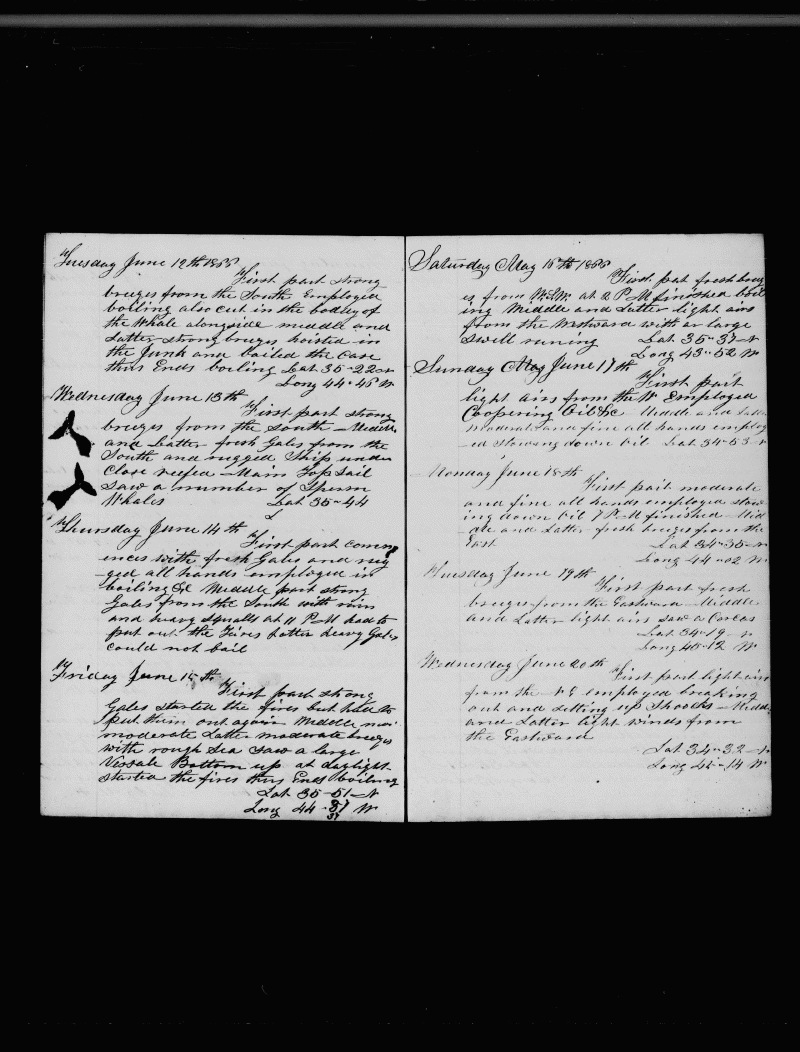 Tuesday June 12th 1855
First part strong
breezes from the South Employed
boiling also cut in the boddy of
the Whale alongside middle and
Latter strong breezes hoisted in
the Junk and bailed the Case
thus Ends boiling Lat 35-22 N
Long 44-45 W
Wednesday June 13th
First part strong
breezes from the South Middle
and Latter fresh Gales from the
South and rugged Ship under
Close reefed Main Top Sail
Saw a number of Sperm
Whales Lat 35-44
L
Thursday June 14th
First part comm
ences with fresh Gales and rug
ged all hands employed in
boiling &c Middle part strong
Gales from the South with rain
and heavy squalls at 11 P M had to
put out the Fires Latter heavy Gales
could not boil
Friday June 15th
First part strong
Gales started the fires but had to
put them out again Middle more
moderate Latter moderate breezes
with rough Sea Saw a large
Vessale Bottom up at daylight
started the fires thus Ends boiling
Lat 35-51 N
Long 44-37 W
37
Saturday May 16th 1855
First part fresh breez
es from at 2 P M finished boil
ing Middle and Latter light airs
from the Westward with a large
swell runing Lat 35-37 N
Long 43-52 W
Sunday May June 17th
First part
light airs from the W Employed
Coopering Oil &c Middle and Latter
moderate and fine all hands employ
ed stowing down Oil Lat 34-53 N
Monday June 18th
First part moderate
and fine all hands employed stow
ing down Oil 7 P M finished Mid
dle and Latter fresh breezes from the
East Lat 34-35 N
Long 44-02 W
Tuesday June 19th
First part fresh
breezes from the Eastward Middle
and Latter light airs saw a
Lat 34-19 N
Long 45-12 W
Wednesday June 20th
First part light airs
from the N E employed breaking
out and Setting up Shooks Middle
and Latter light winds from
the Eastward
Lat 34-32 N
Long 45-14 W